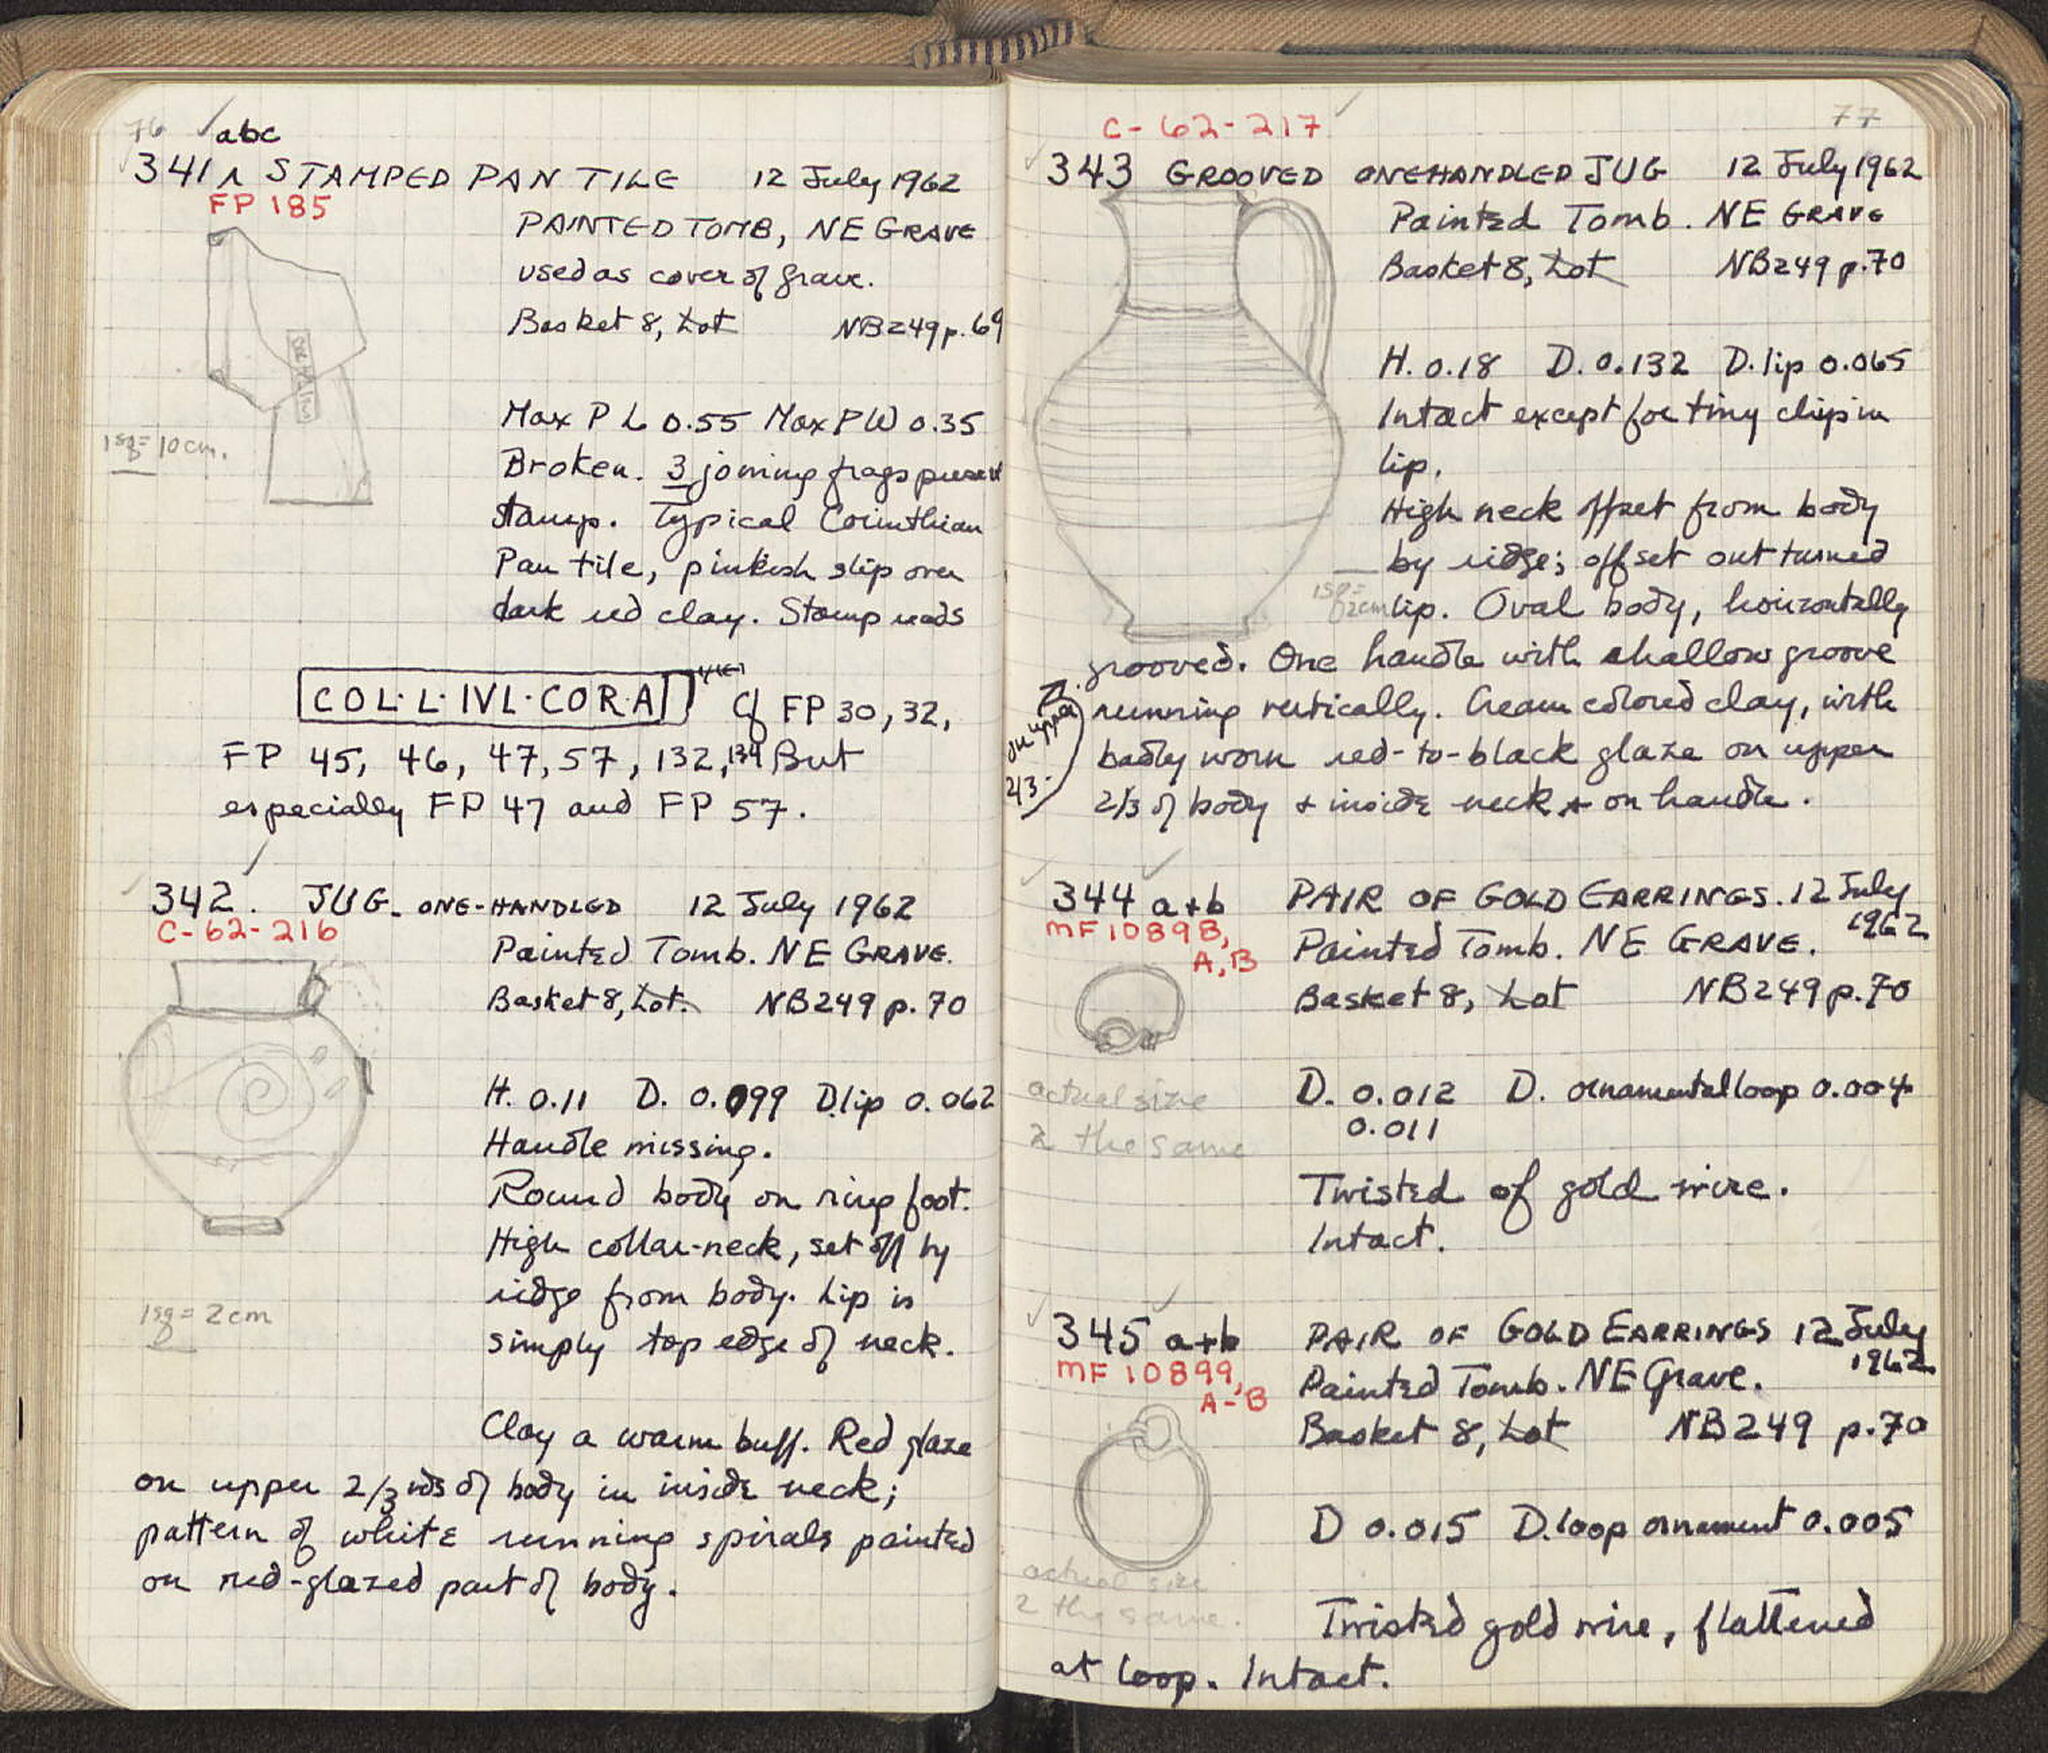 76 ✓ abc
341 ʌ STAMPED PAN TILE 12 July 1962
FP 185
PAINTED TOMB, NE GRAVE
used as cover of grave.
Basket 8, Lot NB249 p. 69
Max P L 0.55 Max P W 0.35
1 sq = 10 cm.
Broken. 3 joining frags preserve
stamp. Typical Corinthian
Pan tile, pinkish slip over
dark red clay. Stamp reads
COL·L·IVL·COR·A
Cf FP 30, 32,
FP 45, 46, 47, 57, 132, 134 But
especially FP 47 and FP 57.
342. JUG - ONE-HANDLED 12 July 1962
C-62-216
Painted Tomb. NE GRAVE.
Basket 8, Lot. NB249 p. 70
H. 0.11 D. 0.099 D. lip 0.062
Handle missing.
Round body on ring foot.
High collar-neck, set off by
ridge from body. Lip is
1 sq = 2 cm
simply top edge of neck.
Clay a warm buff. Red glaze
on upper 2/3rds of body in inside neck;
pattern of white running spirals painted
on red-glazed part of body.
77
C-62-217
343 GROOVED ONEHANDLED JUG 12 July 1962
Painted Tomb. NE GRAVE
Basket 8, Lot NB249 p. 70
H. 0.18 D. 0.132 D. lip 0.065
Intact except for tiny chips in
lip.
High neck offset from body
by ridge; offset out turned
1 sq = 2cm
lip. Oval body, horizontally
grooved. One handle with shallow groove
running vertically. Cream colored clay, with
on upper
2/3.
badly worn red-to-black glaze on upper
2/3 of body + inside neck + on handle.
344 a+b PAIR OF GOLD EARRINGS. 12 July
1962
MF 10898,
A, B
Painted Tomb. NE GRAVE.
Basket 8, Lot NB249 p. 70
actual size
2 the same
D. 0.012 D. ornamental loop 0.004
0.011
Twisted of gold wire.
Intact.
345 a+b PAIR OF GOLD EARRINGS 12 July
1962
MF 10899,
A-B
Painted Tomb. NE Grave.
Basket 8, Lot NB249 p. 70
D 0.015 D. loop ornament 0.005
actual size
2 the same.
Twisted gold wire, flattened
at loop. Intact.